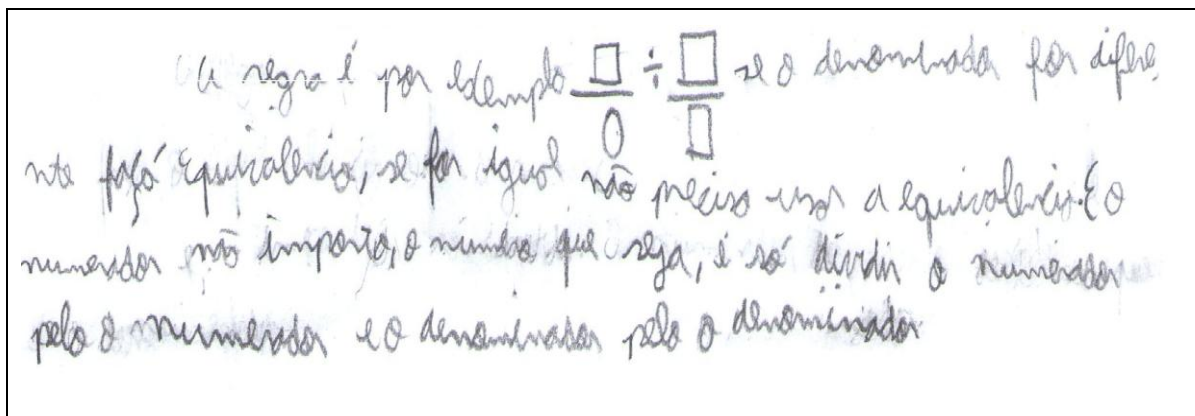 A regra é por exemplo □/0 ÷ □/□ se o denominador for difere
nte faça equivalencia, se for igual não preciso usar a equivalencia. E o
numerador não importa, o número que seja, é só dividir o numerador
pelo o numerador e o denominador pelo o denominador